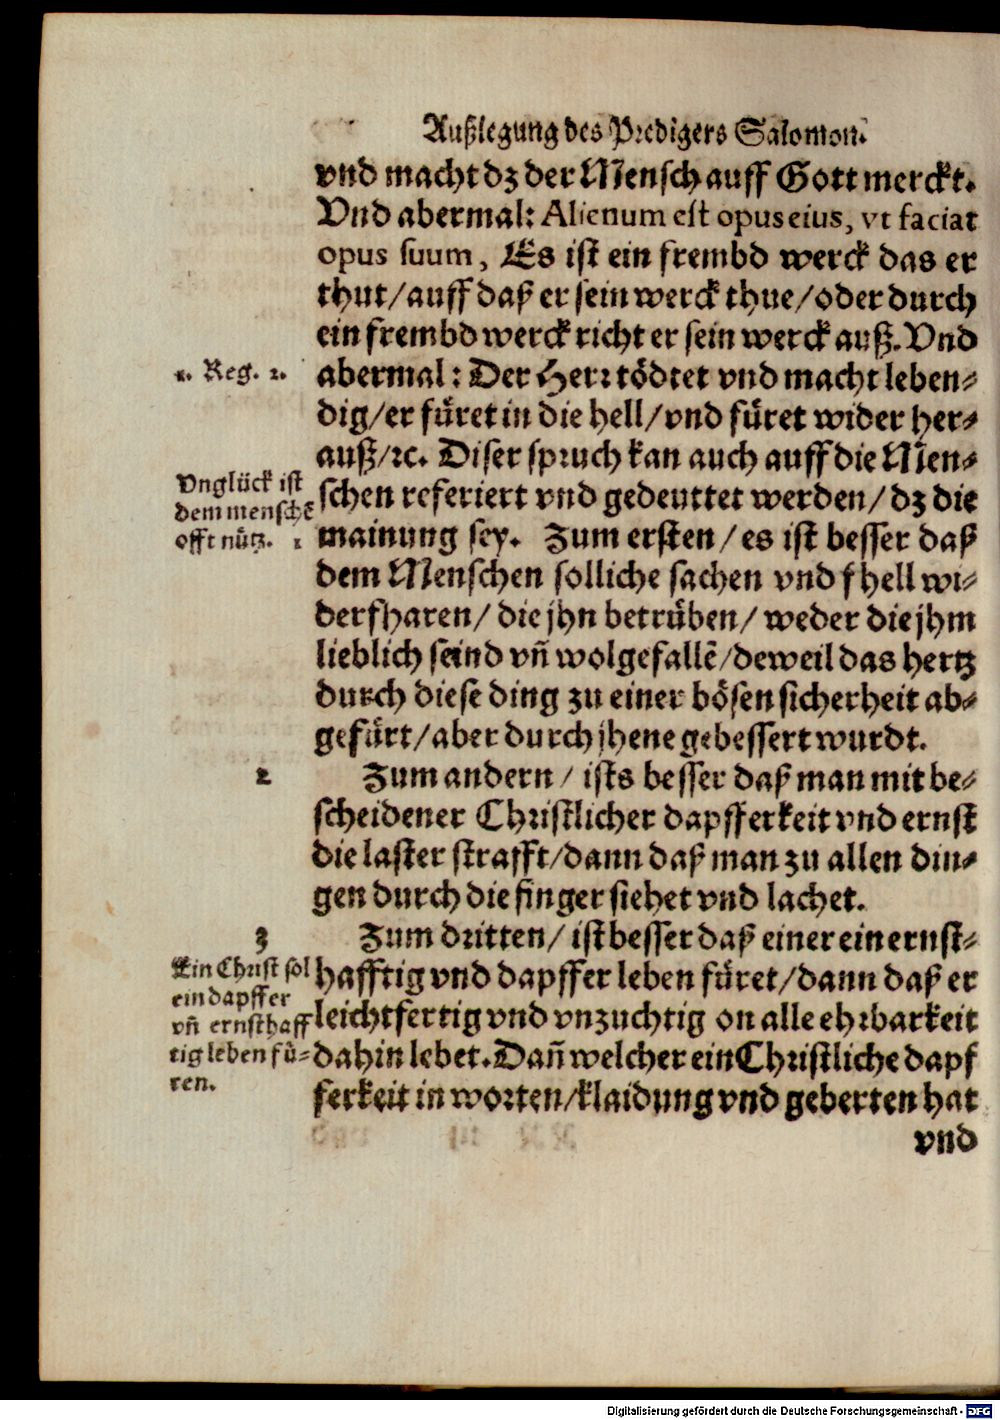 Außlegung des Predigers Salomon.
vnd macht dz der Mensch auff Gott merckt.
Vnd abermal: Alienum est opus eius, vt faciat
opus suum, Es ist ein frembd werck das er
thut/auff daß er sein werck thue/oder durch
ein frembd werck richt er sein werck auß. Vnd
1. Reg. 2.
abermal: Der Herr tödtet vnd macht leben-
dig/er füret in die hell/vnd füret wider her-
auß/ꝛc. Diser spruch kan auch auff die Men-
Vnglück ist
dem menschẽ
offt nütz. 1
schen referiert vnd gedeuttet werden/dz die
mainung sey. Zum ersten/es ist besser daß
dem Menschen solliche sachen vnd fhell wi-
derfharen/die jhn betrüben/weder die jhm
lieblich seind vñ wolgefallẽ/deweil das hertz
durch diese ding zu einer bösen sicherheit ab-
gefürt/aber durch jhene gebessert wurdt.
2
Zum andern/ists besser daß man mit be-
scheidener Christlicher dapfferkeit vnd ernst
die laster strafft/dann daß man zu allen din-
gen durch die finger siehet vnd lachet.
3
Zum dritten/ist besser daß einer ein ernst-
Ein Christ sol
ein dapffer
vñ ernsthaff
tig leben fü-
ren.
hafftig vnd dapffer leben füret/dann daß er
leichtfertig vnd vnzuchtig on alle ehrbarkeit
dahin lebet. Dañ welcher ein Christliche dapf
ferkeit in worten/klaidung vnd geberten hat
vnd
Digitalisierung gefördert durch die Deutsche Forschungsgemeinschaft - DFG